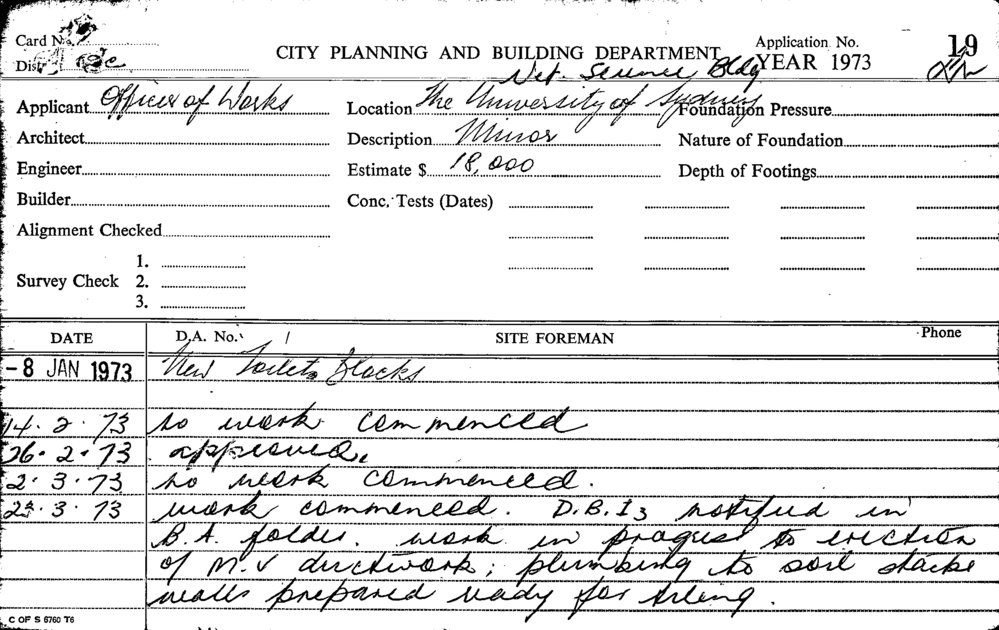 Card No.
CITY PLANNING AND BUILDING DEPARTMENT
Application No. 19
Dist
YEAR 1973
Vet. Science Bldg
Applicant Office of Works
Location The University of Sydney
Foundation Pressure
Architect
Description Minor
Nature of Foundation
Engineer
Estimate $ 18,000
Depth of Footings
Builder
Conc. Tests (Dates)
Alignment Checked
Survey Check 1.
2.
3.
DATE D.A. No. / SITE FOREMAN Phone
-8 JAN 1973 New Toilet Blocks
14.2.73 no work commenced
26.2.73 approved.
2.3.73 no work commenced.
23.3.73 work commenced. D.B.I. notified in
B.A. folder. work in progress to erection
of M.V ductwork; plumbing to soil stacks
walls prepared ready for tiling.
C OF S 6760 T6